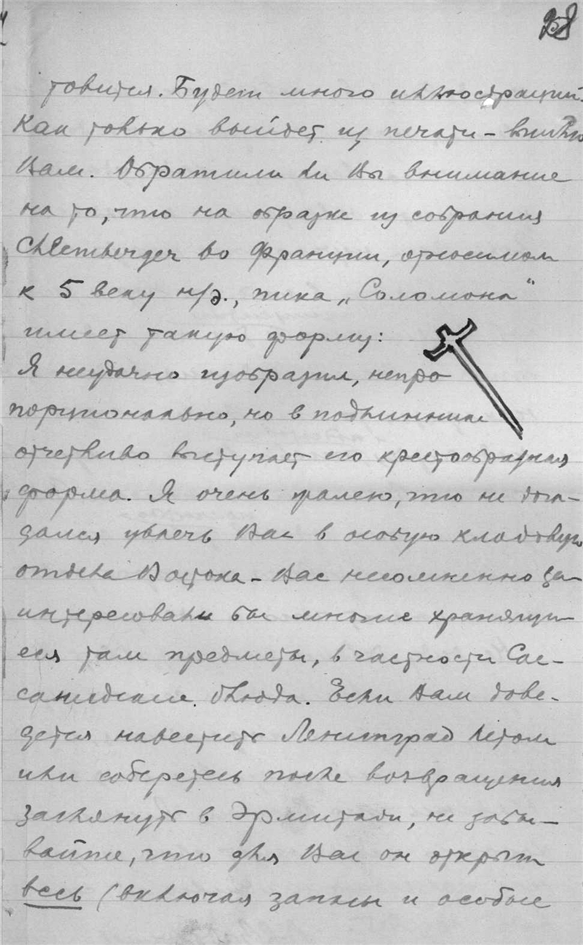 258
товится. Будет много иллюстраций.
Как только выйдет из печати – вышлю
Вам. Обратили ли Вы внимание
на то, что на образке из собрания
Schlemberger во Франции, относимом
к 5 веку н/э., пика „Соломона"
имеет такую форму:
Я неудачно изобразил, непро
порционально, но в подлиннике
отчетливо выступает его крестообразная
форма. Я очень жалею, что не дога-
дался увлечь Вас в особую кладовую
отдела Востока – Вас несомненно за-
интересовали бы многие хранящи-
еся там предметы, в частности Сас-
санидские блюда. Если Вам дове-
дется навестить Ленинград летом
или соберетесь после возвращения
заглянуть в Эрмитаж, не забы-
вайте, что для Вас он открыт
весь (включая запасы и особые